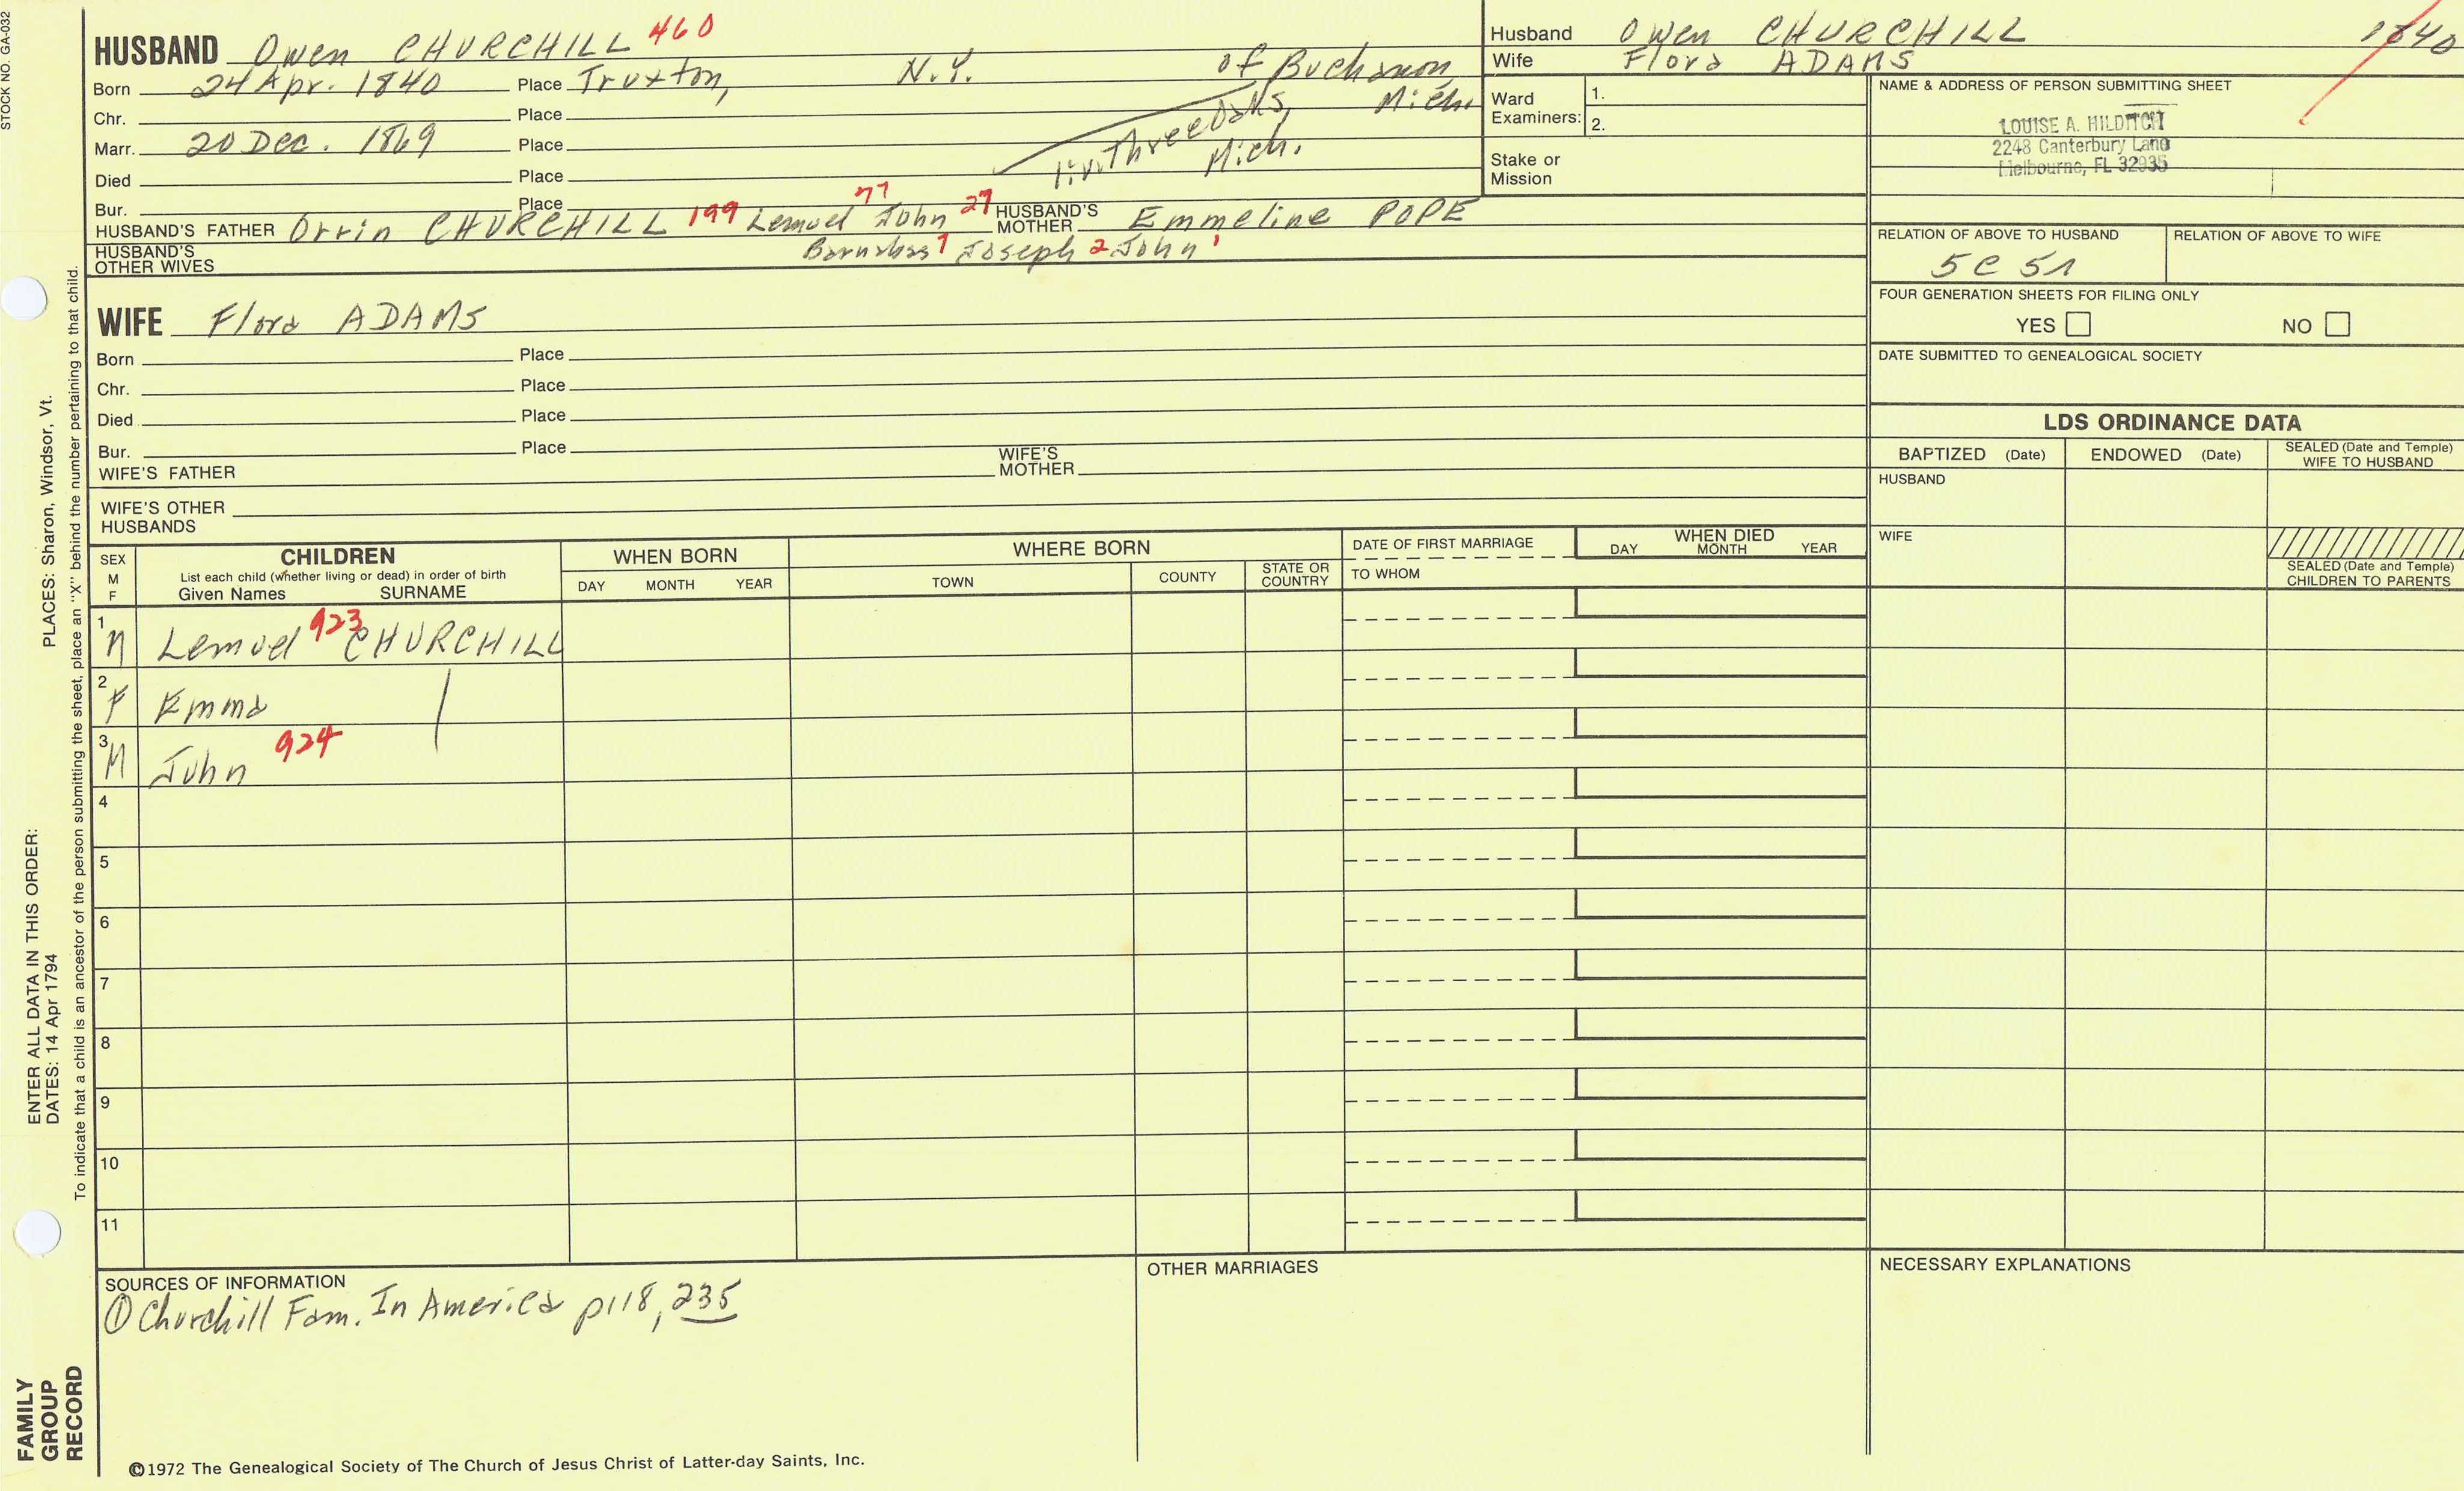 STOCK NO. GA-032
HUSBAND Owen CHURCHILL 460
Born 24 Apr. 1840 Place Truxton, N.Y. of Buchanon Mich.
Chr. Place
Marr. 20 Dec. 1869 Place
liv. Three Oaks, Mich.
Died Place
Bur. Place
HUSBAND'S FATHER Orrin CHURCHILL 199 Lemuel 77 John 27 HUSBAND'S MOTHER Emmeline POPE
HUSBAND'S OTHER WIVES Barnabas 7 Joseph 2 John 1
Husband Owen CHURCHILL 1840
Wife Flora ADAMS
Ward Examiners: 1.
2.
Stake or Mission
NAME & ADDRESS OF PERSON SUBMITTING SHEET
LOUISE A. HILDITCH
2248 Canterbury Lane
Melbourne, FL 32935
RELATION OF ABOVE TO HUSBAND RELATION OF ABOVE TO WIFE
5C 5R
FOUR GENERATION SHEETS FOR FILING ONLY
YES NO
DATE SUBMITTED TO GENEALOGICAL SOCIETY
WIFE Flora ADAMS
Born Place
Chr. Place
Died Place
Bur. Place
WIFE'S FATHER WIFE'S MOTHER
WIFE'S OTHER HUSBANDS
LDS ORDINANCE DATA
BAPTIZED (Date) ENDOWED (Date) SEALED (Date and Temple) WIFE TO HUSBAND
HUSBAND
WIFE
SEALED (Date and Temple) CHILDREN TO PARENTS
SEX M F
CHILDREN
List each child (whether living or dead) in order of birth
Given Names SURNAME
WHEN BORN
DAY MONTH YEAR
WHERE BORN
TOWN COUNTY STATE OR COUNTRY
DATE OF FIRST MARRIAGE
TO WHOM
WHEN DIED
DAY MONTH YEAR
1 M Lemuel 923 CHURCHILL
2 F Emma
3 M John 924
4
5
6
7
8
9
10
11
SOURCES OF INFORMATION
① Churchill Fam. In America p118, 235
OTHER MARRIAGES
NECESSARY EXPLANATIONS
©1972 The Genealogical Society of The Church of Jesus Christ of Latter-day Saints, Inc.
FAMILY GROUP RECORD
ENTER ALL DATA IN THIS ORDER:
DATES: 14 Apr 1794
PLACES: Sharon, Windsor, Vt.
To indicate that a child is an ancestor of the person submitting the sheet, place an "X" behind the number pertaining to that child.